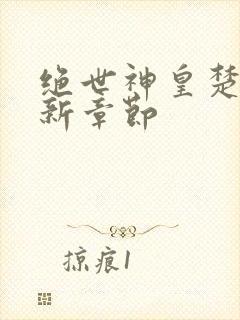 绝世神皇楚
新章节
掠痕1